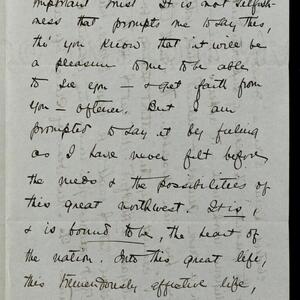 important trust It is not selfish-
ness that prompts me to say this,
tho' you know that it will be
a pleasure to me to be able
to see you — & get faith from
you — oftener. But I am
prompted to say it by feeling
as I have never felt before
the needs & the possibilities of
this great northwest. It is,
& is bound to be, the heart of
the nation. Into this great life,
this tremendously effective life,